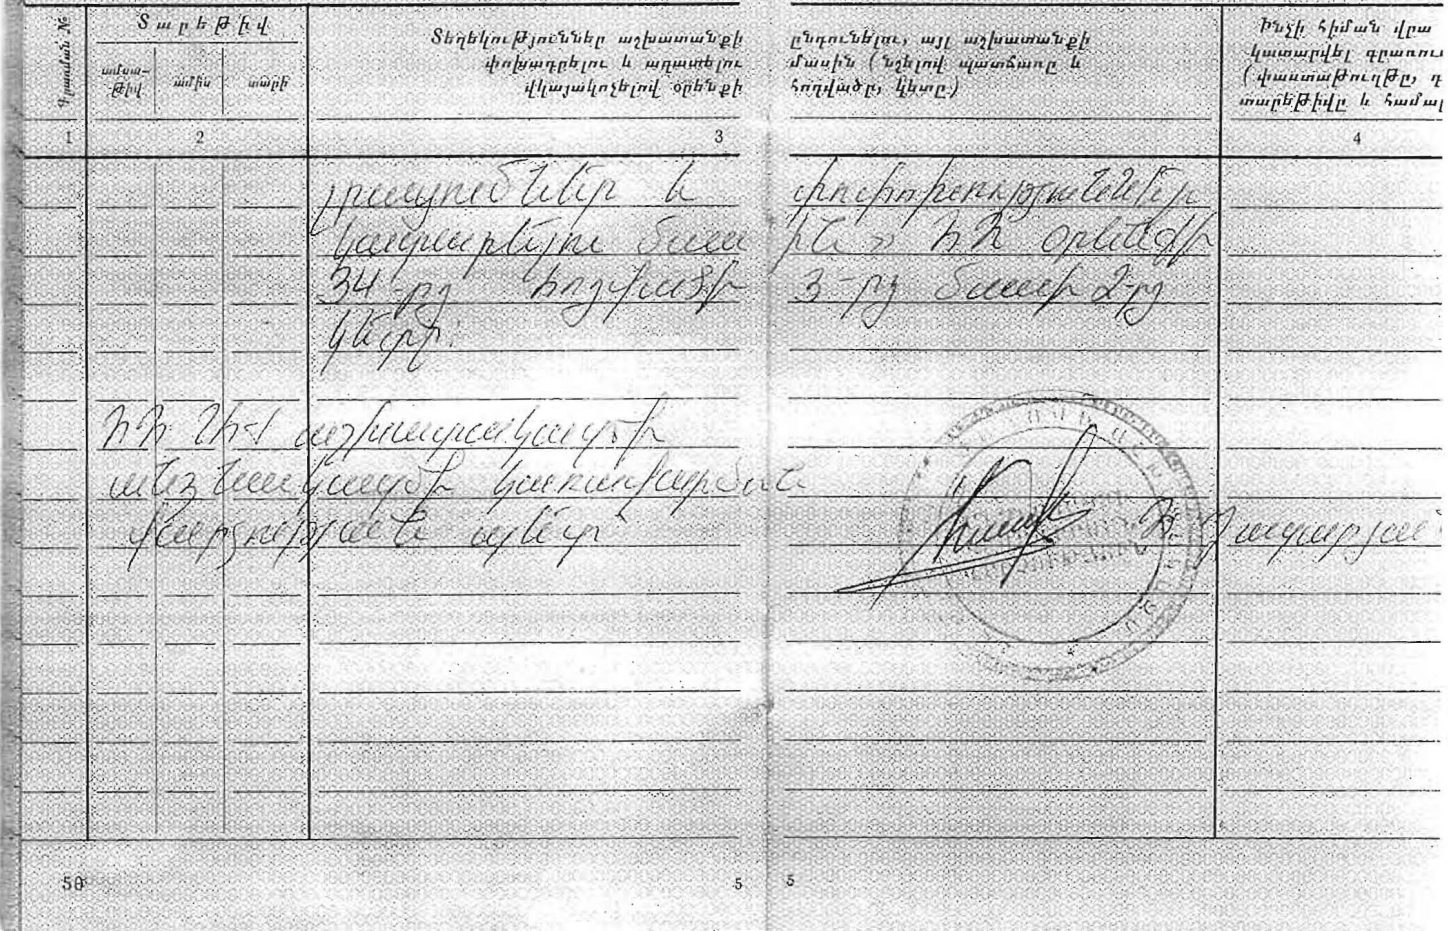 Գրառման №
Տարեթիվ
ամսա-
թիվ
ամիս
տարի
Տեղեկություններ աշխատանքի ընդունելու, այլ աշխատանքի
փոխադրելու և ազատելու մասին (նշելով պատճառը և
վկայակոչելով օրենքի հոդվածը, կետը)
Ինչի հիման վրա
կատարվել գրառու
(փաստաթուղթը, դ
տարեթիվը և համար
1 2 3 4
լրացումներ և փոփոխություններ
կատարելու մասին» ՀՀ օրենքի
34-րդ հոդվածի 3-րդ մասի 2-րդ
կետի:
ՀՀ աշխատակազմի
անձնակազմի կառավարման
վարչության պետ՝
50 5 5